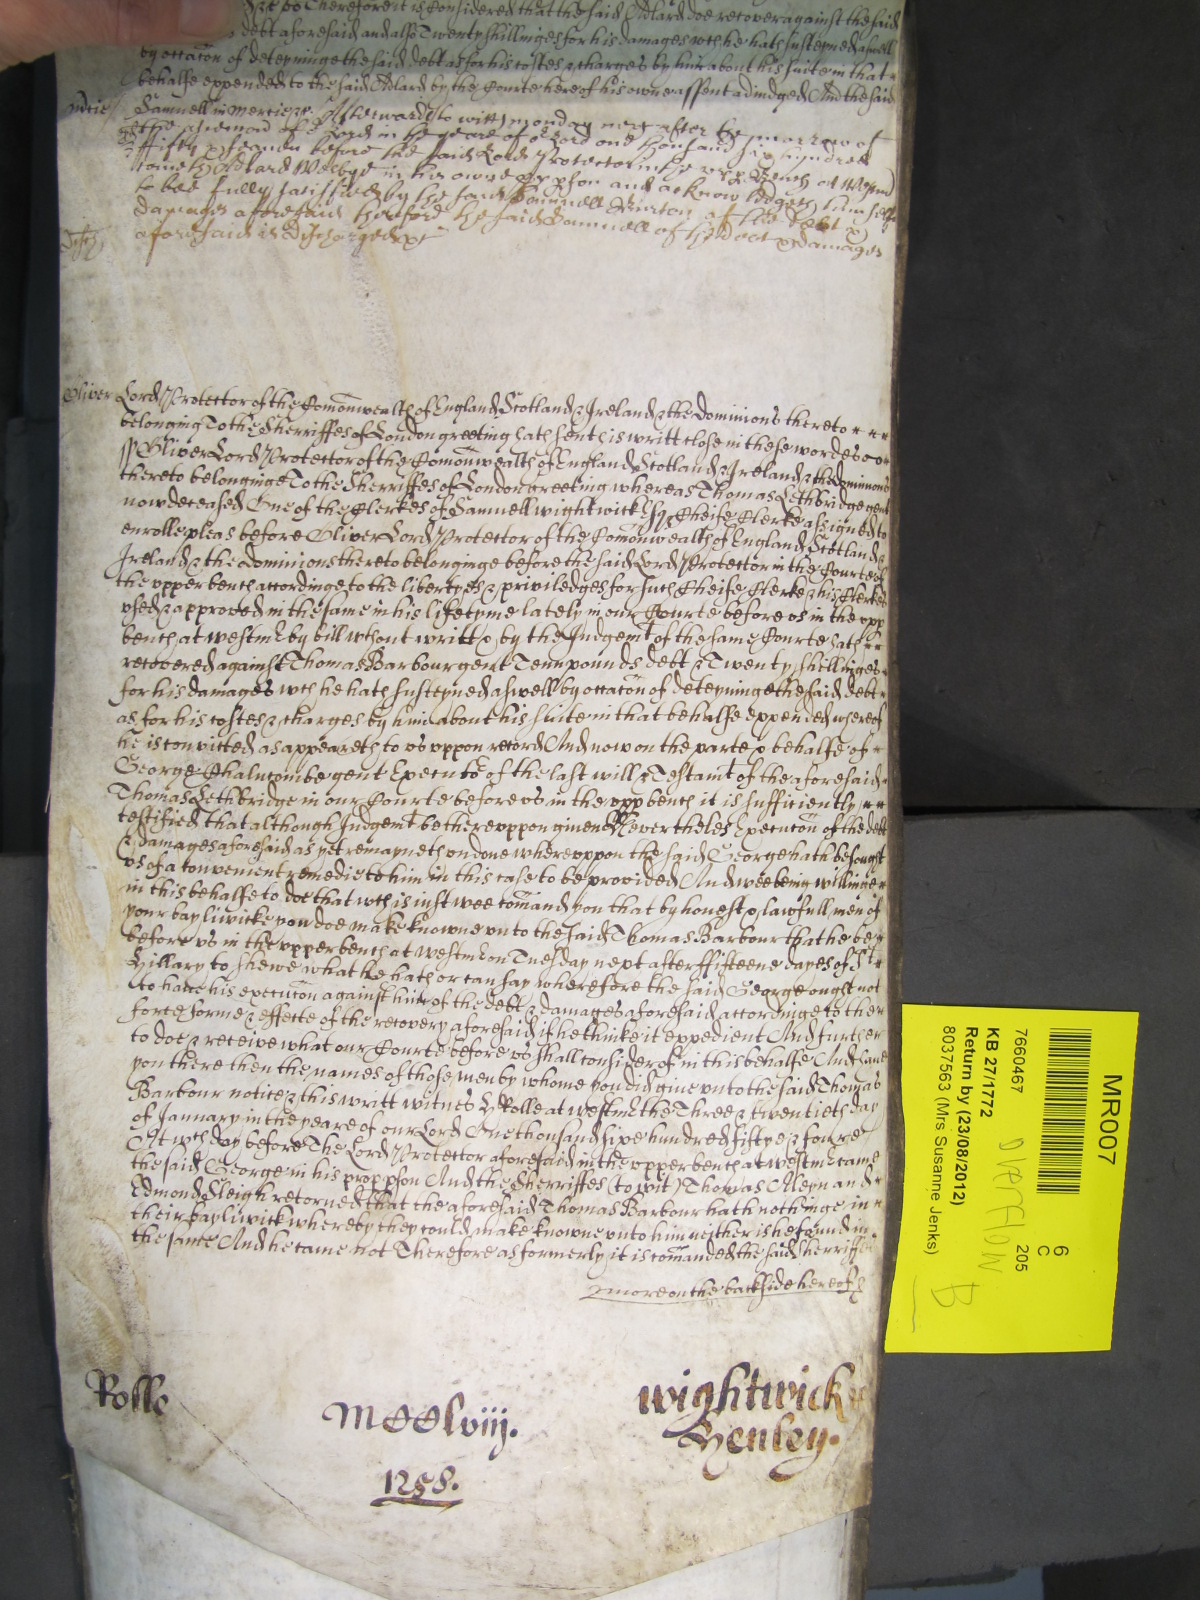 Therefore it is Considered that the said Adlard doe recover against the said
debt aforesaid and also Twenty shillinges for his damages wch he hath susteyned aswell
by occacon of deteyninge the said debt as for his costes & charges by him about his suite in that
behalfe expended to the said Adlard by the Courte here of his owne assent adiudged And the said
Samuell in mercie &c Afterwards to witt monday next after the morrow of
the in the yeare of or Lord one thousand six hundred
ffifty & seaven before the said Lord Protector in the upp Bench at Westm
Come th Adlard Welbye in his owne pson and acknowledgeth himselfe
to bee fully satisfied by the said Samuell Burton of the debt &
damages aforesaid therefore the said Samuell of the debt & damages
aforesaid is dischargedd &c
Oliver Lord Protector of the Comonwealth of England Scotland & Ireland & the dominions thereto
belonging To the Sherriffes of London greeting hath sent his writt close in these wordes
ss Oliver Lord Protector of the Comonwealth of England Scotland & Ireland & the dominions
thereto belonginge To the Sherriffes of London greeting whereas Thomas Lethbridge gent
now deceased One of the Clerkes of Samuell Wightwick Esqr Cheife Clerke assigned to
enrolle pleas before Oliver Lord Protector of the Comonwealth of England Scotland &
Ireland & the Dominions thereto belonginge before the said Lord Protector in the Courte of
the upper bench accordinge to the libertyes & priviledges for such Cheife Clerke & his Clerkes
used & approved in the same in his lifetyme lately in our Courte before us in the upp
bench at westmr by bill wthout writt & by the Judgemt of the same Courte hath
recovered against Thomas Barbour gent Tenn pounds debt & Twenty shillinges
for his damages wch he hath susteyned aswell by occacon of deteyninge the said debt
as for his costes & charges by him about his suite in that behalfe expended whereof
he is convicted as appeareth to us uppon record And now on the parte & behalfe of
George Chalncombe gent Executor of the last will & Testamt of the aforesaid
Thomas Lethbridge in our Courte before us in the upp bench it is sufficiently
testified that although Judgemt be thereuppon given Nevertheles Execucon of the debt
& damages aforesaid as yet remayneth undone whereuppon the said George hath besought
us of a convenient remedie to him in this case to be provided And wee being willinge
in this behalfe to doe that wch is iust wee comand you that by honest & lawfull men of
your bayliwicke you doe make knowne unto the said Thomas Barbour that he be
before us in the upper bench at westmr on Tuesday next after ffifteene dayes of St
Hillary to shewe what he hath or can say wherefore the said George ought not
to have his execucon against him of the debt & damages aforesaid accordinge to the
force forme & effecte of the recovery aforesaid if he thinke it expedient And further
to doe & receive what our Courte before us shall consider of in this behalfe And have
you there then the names of those men by whome you did give unto the said Thomas
Barbour notice & this writt witnes H Rolle at westmr the Three & twentieth day
of January in the yeare of our Lord One thousand sixe hundred fiftye & fowre
At wch day before The Lord Protector aforesaid in the upper bench at westmr came
the said George in his propp pson And the Sherriffes (to wit) Thomas Aleyn and
Edmond Sleigh retorned that the aforesaid Thomas Barbour hath nothinge in
their bayliwick whereby they could make knowne unto him neither is he found in
the same And he came not Therefore as formerly it is comanded the said Sherriffes
more on the backside hereof
Rolle
MCClviij.
1258.
Wightwick
Henley.
MR007
6
C
205
7660467
KB 27/1772
Return by (23/08/2012)
8037563 (Mrs Susanne Jenks)
overflow
B